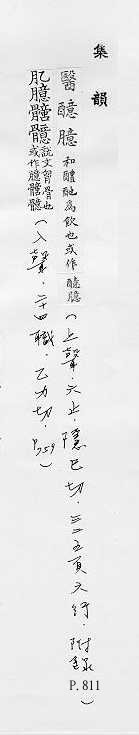 集韻
醫醷臆 和醴酏為飲也或作醷臆（上聲．六止．隱已切．三二五頁六行．附錄 P. 811）
肊臆髓䯧 說文胷骨也或作臆（入聲．二十四職．乙力切．P.759）